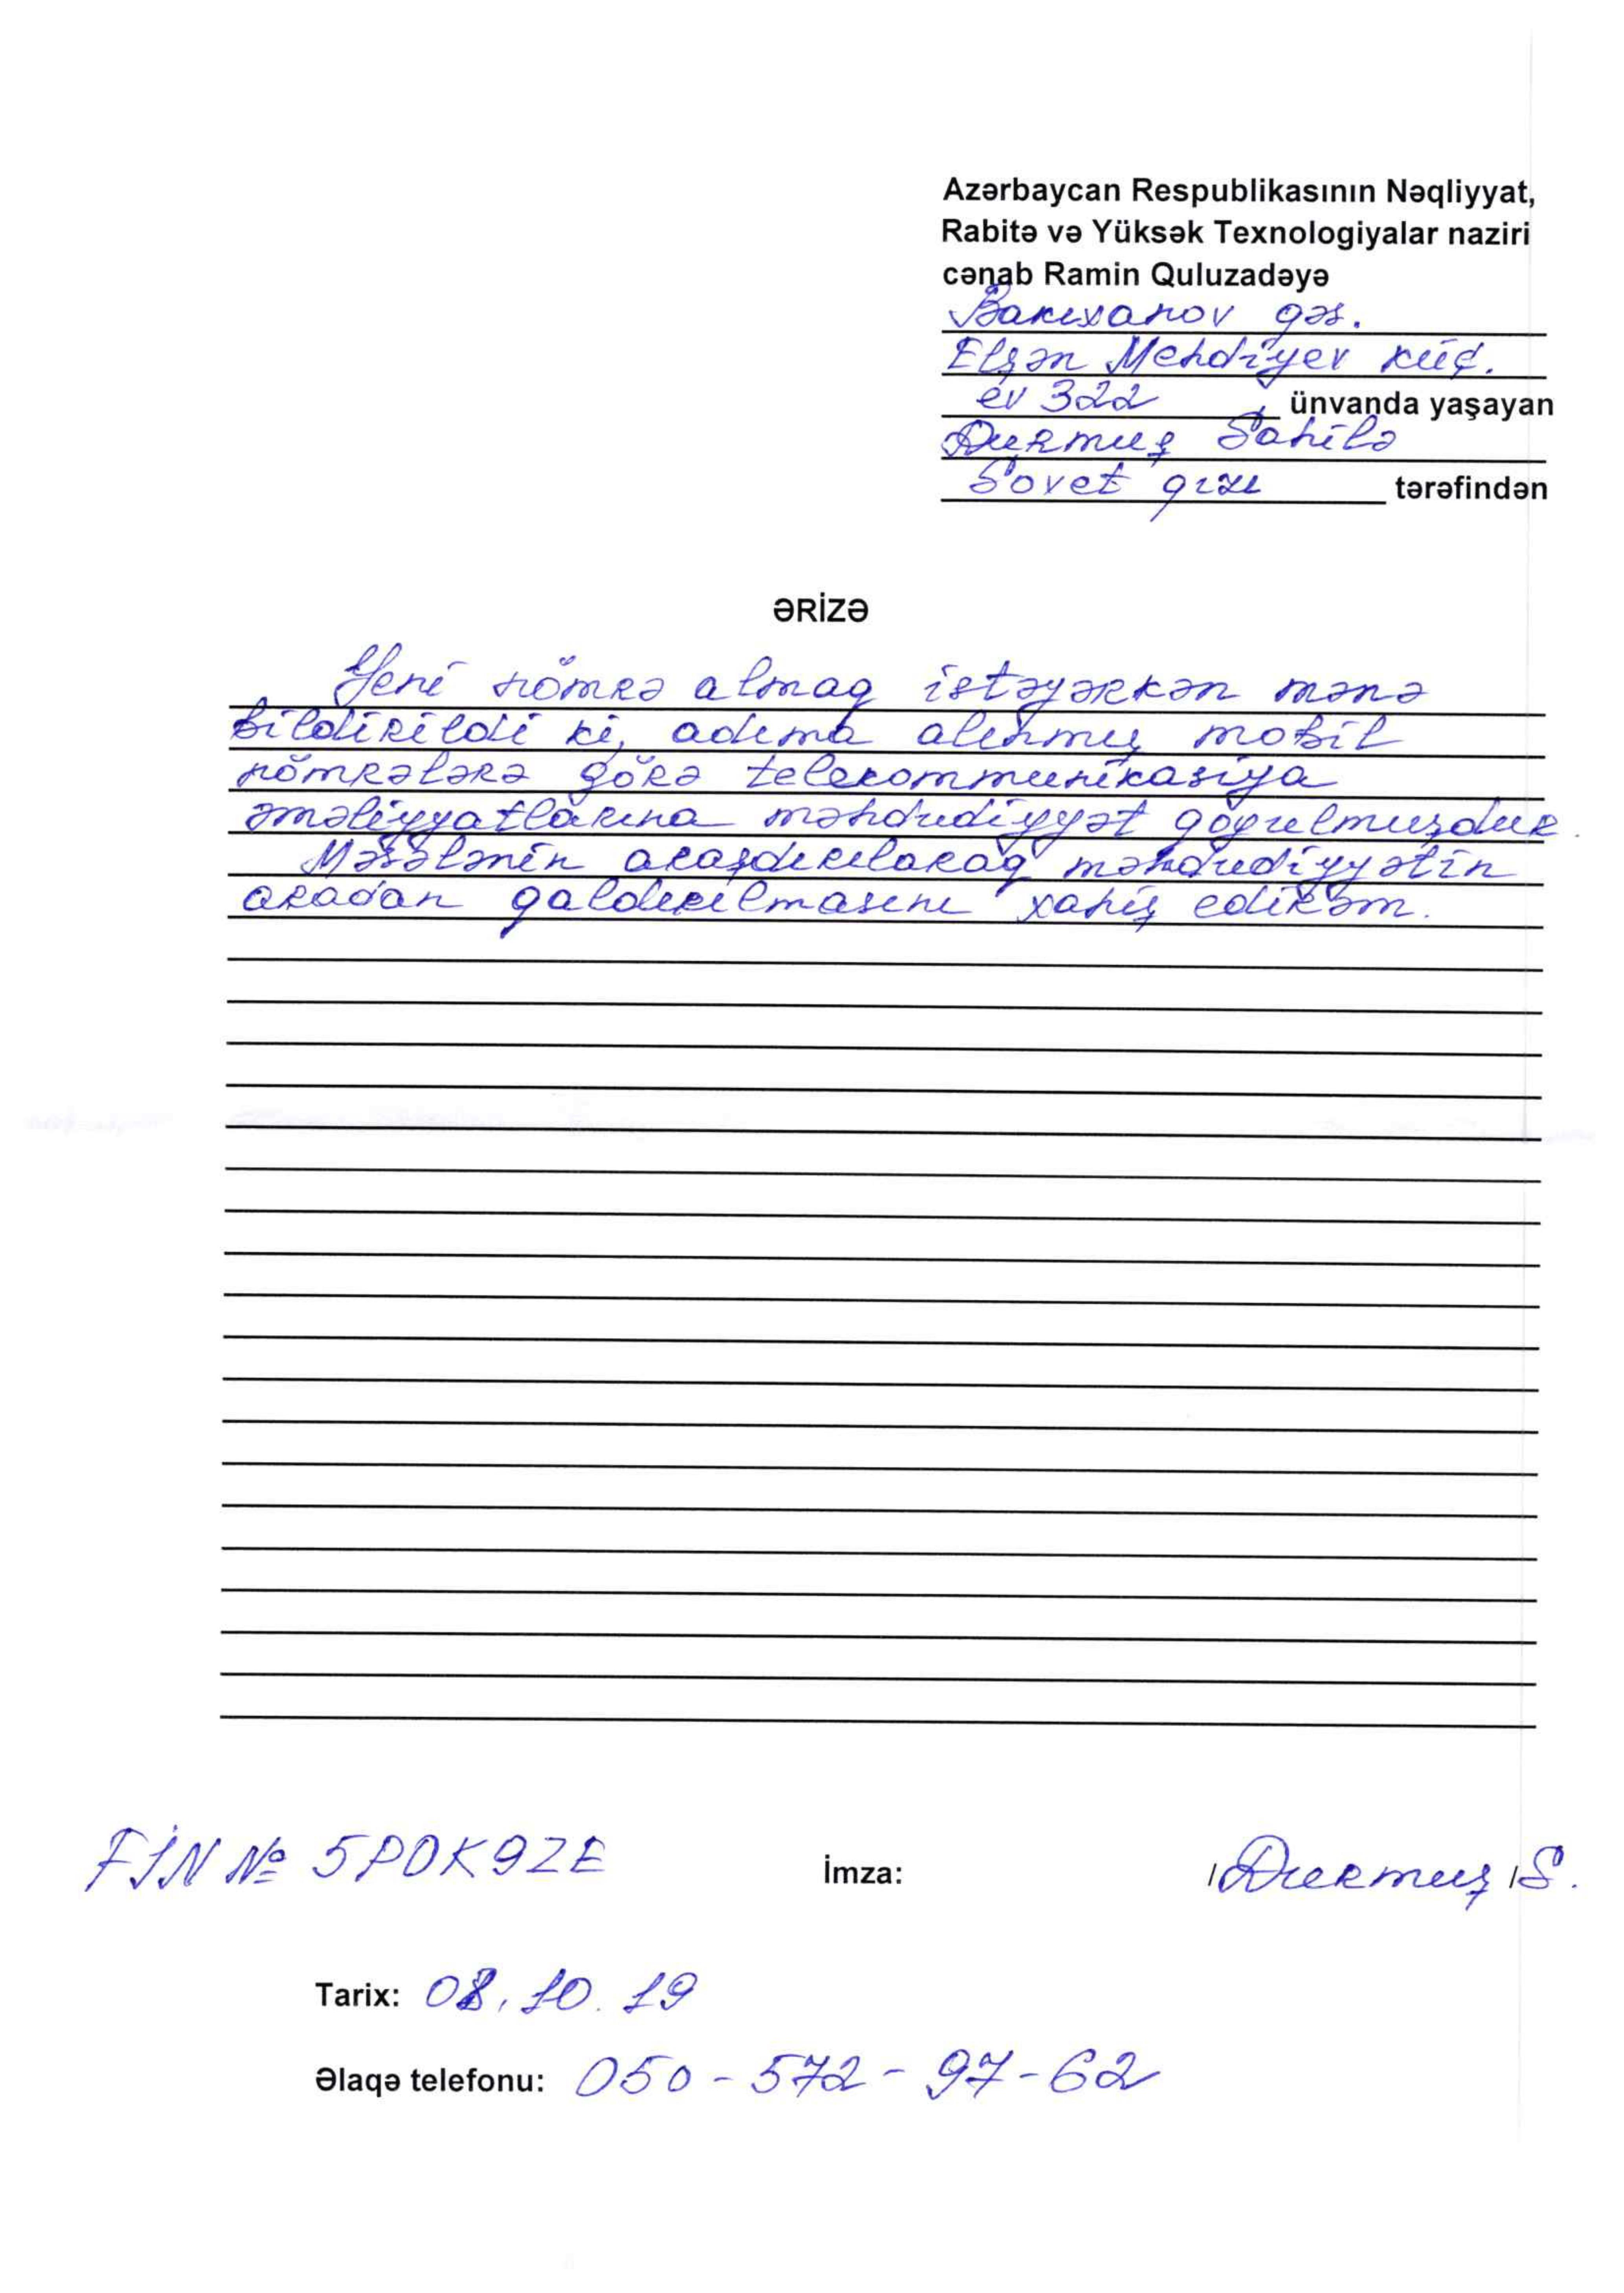 Azərbaycan Respublikasının Nəqliyyat,
Rabitə və Yüksək Texnologiyalar naziri
cənab Ramin Quluzadəyə
Bakıxanov qəs.
Elşən Mehdiyev küç.
ev 322 , ünvanda yaşayan
Durmuş Sahilə
Sovet qızı tərəfindən
ƏRİZƏ
Yeni nömrə almaq istəyərkən mənə
bildirildi ki, adıma alınmış mobil
nömrələrə görə telekommunikasiya
əməliyyatlarına məhdudiyyət qoyulmuşdur.
Məsələnin araşdırılaraq məhdudiyyətin
aradan qaldırılmasını xahiş edirəm.
FİN № 5PDK9ZE İmza: /Durmuş /S.
Tarix: 08.10.19
Əlaqə telefonu: 050-572-97-62